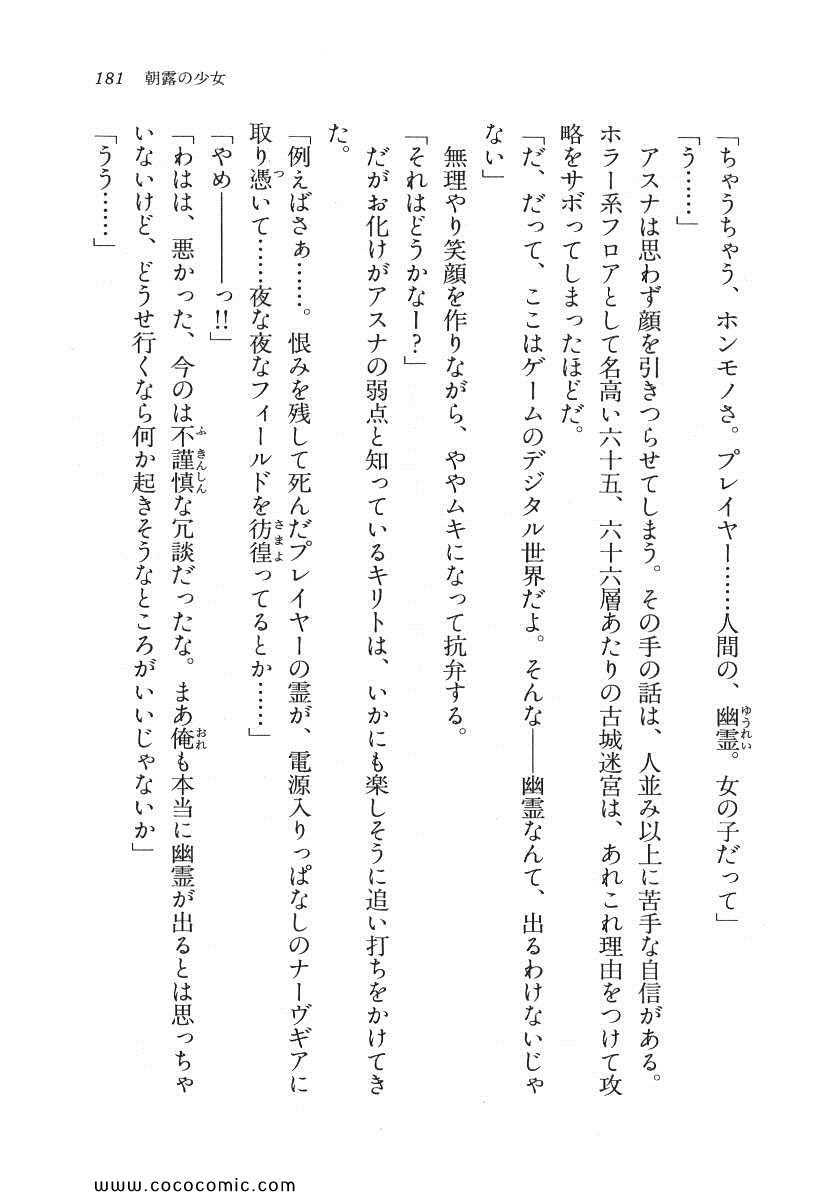 181 朝露の少女
「ちゃうちゃう、ホンモノさ。プレイヤー……人間の、幽霊。女の子だって」
「う……」
　アスナは思わず顔を引きつらせてしまう。その手の話は、人並み以上に苦手な自信がある。
ホラー系フロアとして名高い六十五、六十六層あたりの古城迷宮は、あれこれ理由をつけて攻
略をサボってしまったほどだ。
「だ、だって、ここはゲームのデジタル世界だよ。そんな――幽霊なんて、出るわけないじゃ
ない」
　無理やり笑顔を作りながら、ややムキになって抗弁する。
「それはどうかなー？」
　だがお化けがアスナの弱点と知っているキリトは、いかにも楽しそうに追い打ちをかけてき
た。
「例えばさぁ……。恨みを残して死んだプレイヤーの霊が、電源入りっぱなしのナーヴギアに
取り憑いて……夜な夜なフィールドを彷徨ってるとか……」
「やめ――――っ!!」
「わはは、悪かった、今のは不謹慎な冗談だったな。まあ俺も本当に幽霊が出るとは思っちゃ
いないけど、どうせ行くなら何か起きそうなところがいいじゃないか」
「うう……」
www.cococomic.com